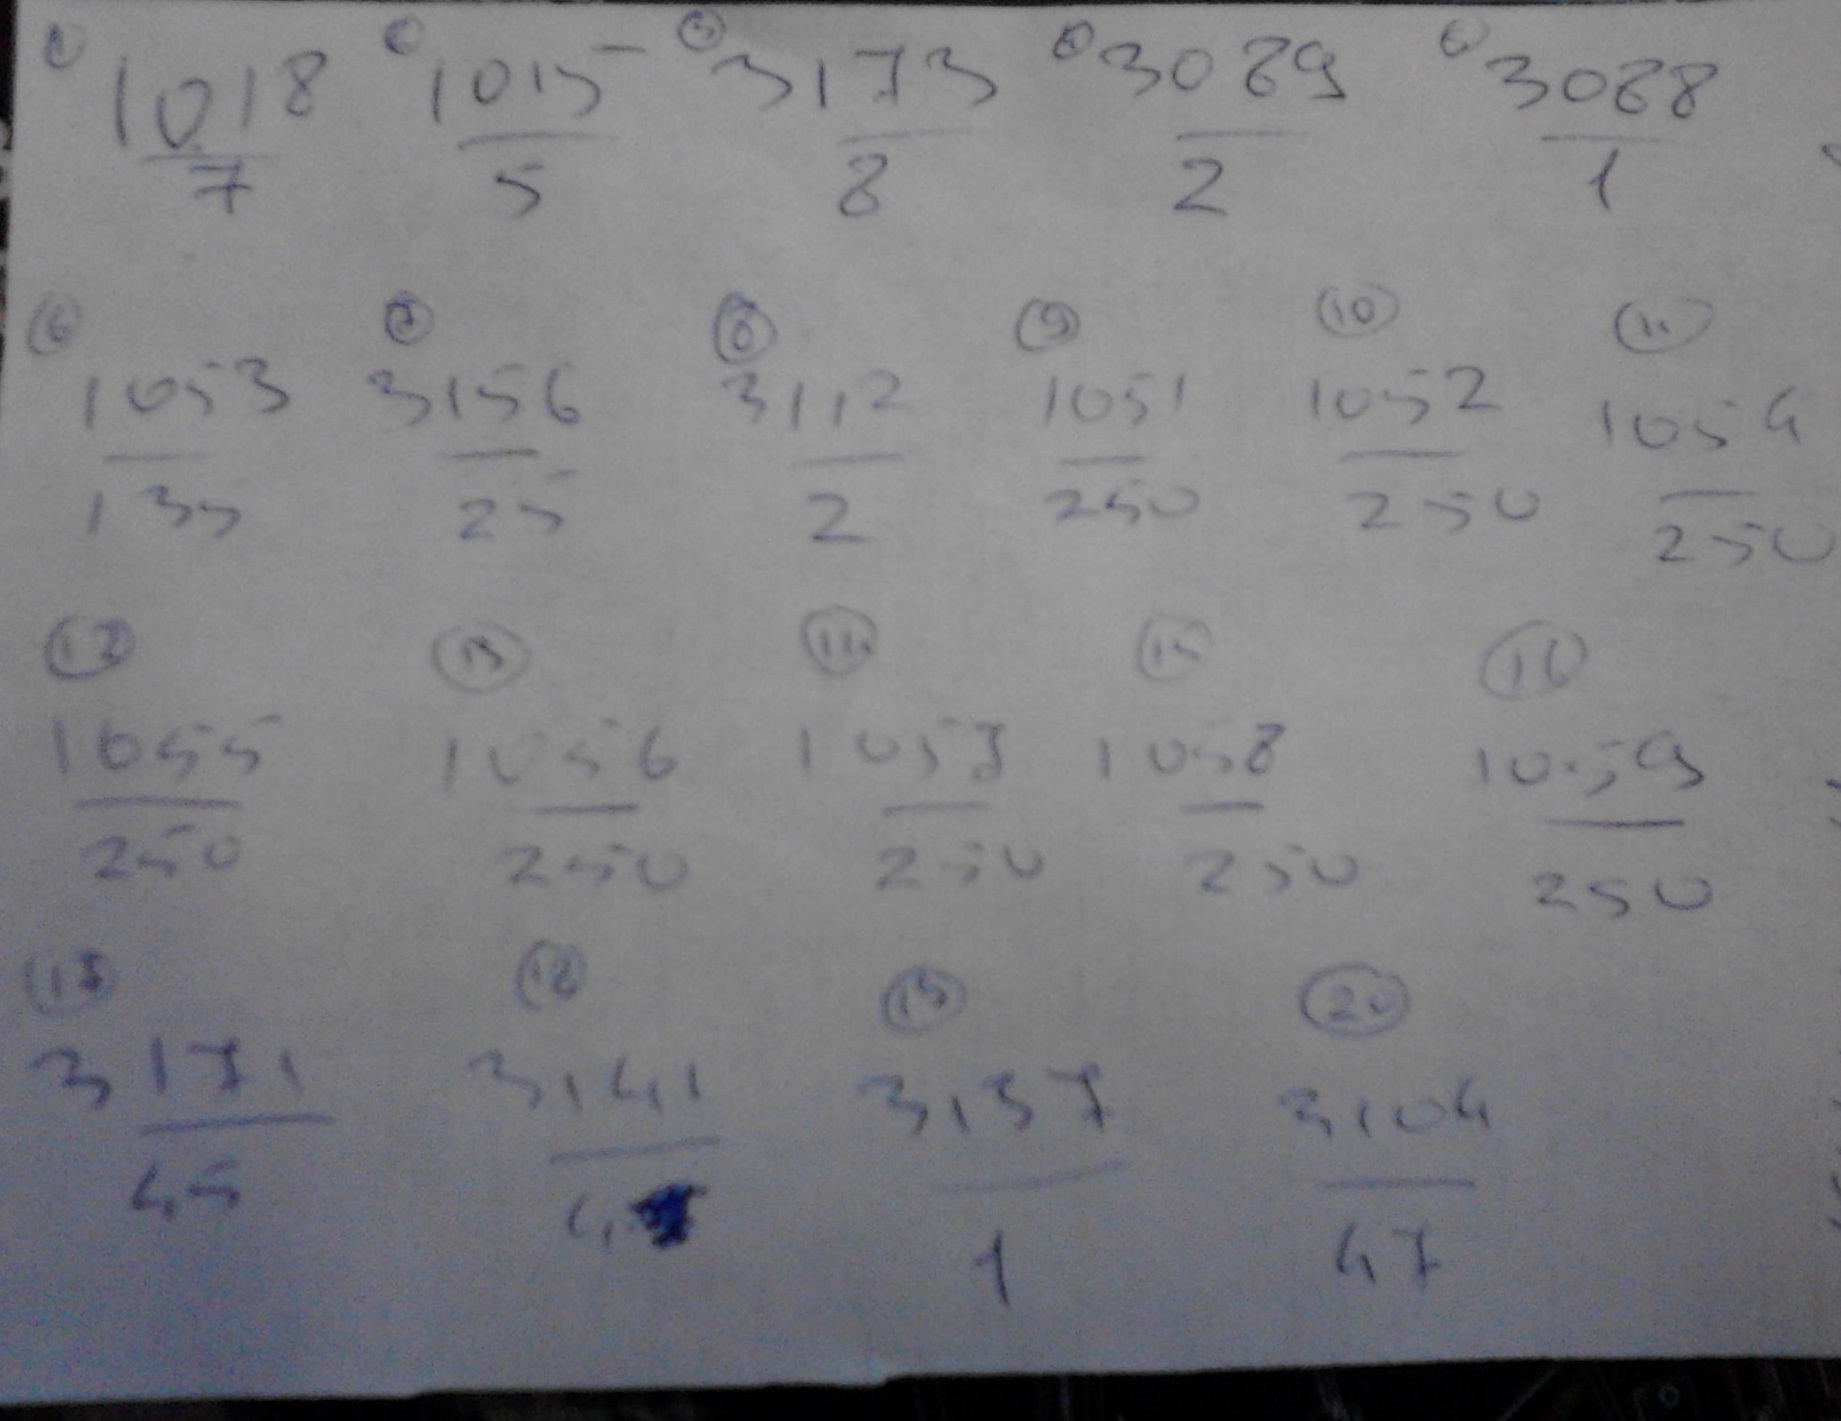 1018 1015 3173 3089 3088
7 5 8 2 1
6 7 8 9 10 11
1053 3156 3112 1051 1052 1054
135 25 2 250 250 250
12 13 14 15 16
1055 1056 1057 1058 1059
250 250 250 250 250
17 18 19 20
3171 3141 3137 3104
45 1 47